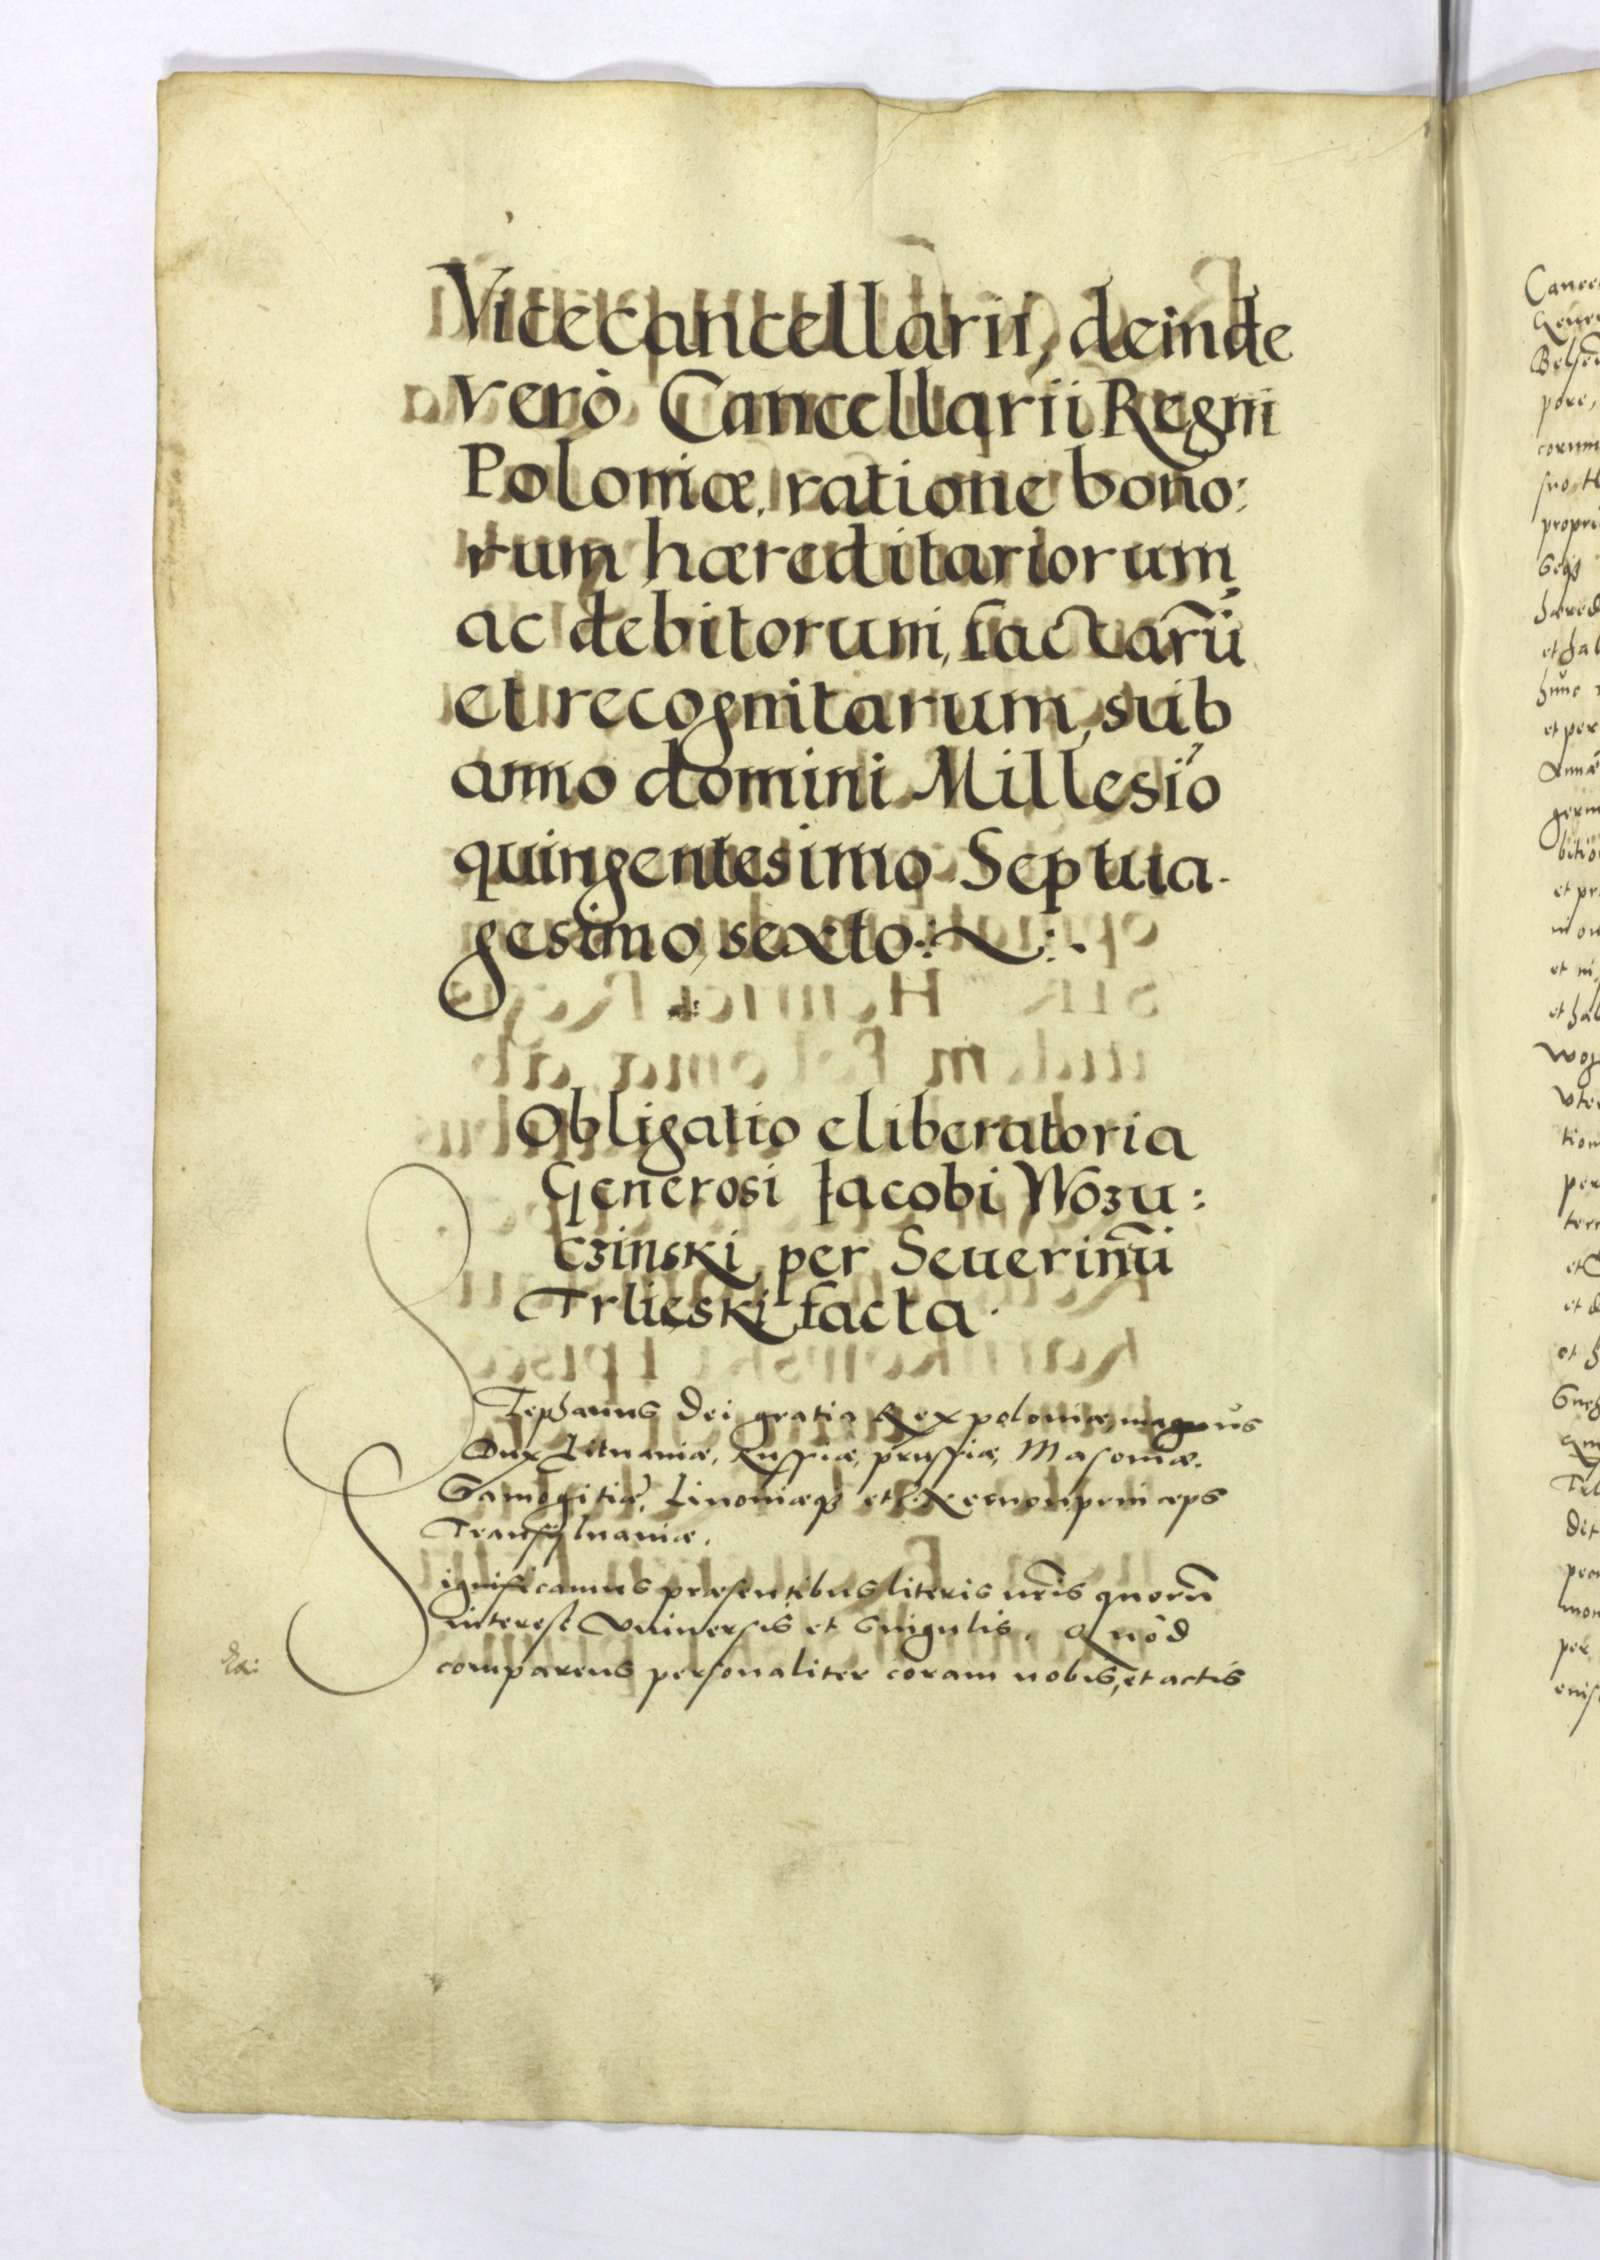 Vicecancellarii, deinde
verò Cancellarii Regni
Poloniæ, ratione bono:
rum hæreditariorum
ac debitorum, factarū
et recognitarum, sub
anno domini Millesiō
quingentesimo Septua-
gesimo, sexto
Obligatio eliberatoria
Generosi Iacobi Wozu:
czinski per Seuerinū
Trlieski facta.
Stephanus Dei gratia Rex poloniæ, magnus
Dux Lituaniæ, Russiæ, prussiæ, Masoviæ,
Samogitiæ, Livoniæqz etc. Necnon princeps
Transsylvaniæ.
Significamus præsentibus literis nr̄is quorū
interest Vniversis et Singulis. Quòd
comparens personaliter coram nobis, et actis
Cance
Gene
pore,
corum
propri
hæred
et hab
et per
et pr
et hab
tion
per
et
et d
et h
per